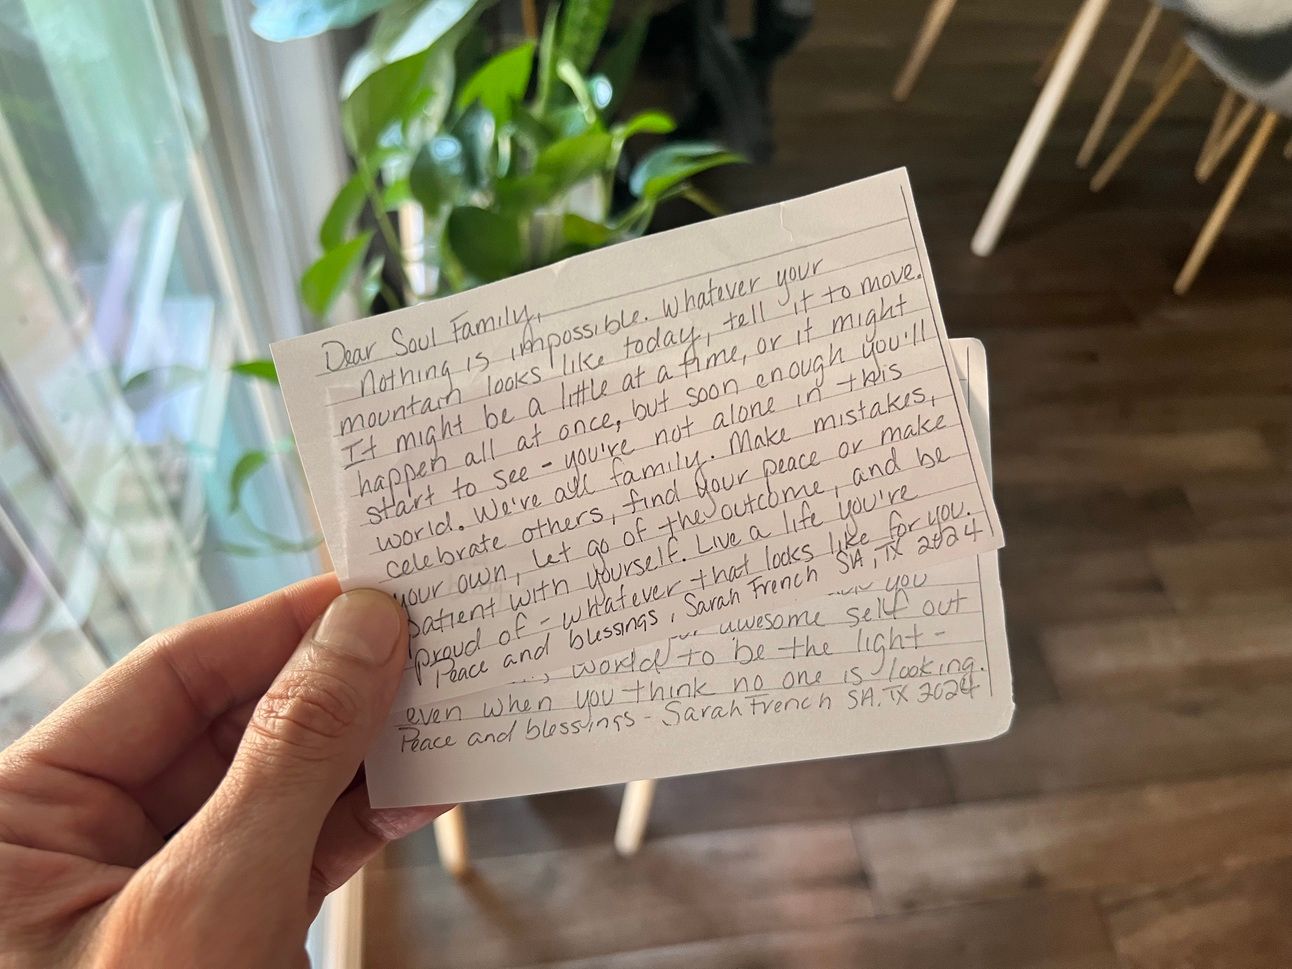 Dear Soul Family,
Nothing is impossible. Whatever your
mountain looks like today, tell it to move.
It might be a little at a time, or it might
happen all at once, but soon enough you'll
start to see - you're not alone in this
world. We're all family. Make mistakes,
celebrate others, find your peace or make
your own, let go of the outcome, and be
patient with yourself. Live a life you're
proud of - whatever that looks like for you.
Peace and blessings, Sarah French SA, TX 2024
you
awesome self out
world to be the light -
even when you think no one is looking.
Peace and blessings - Sarah French SA, TX 2024